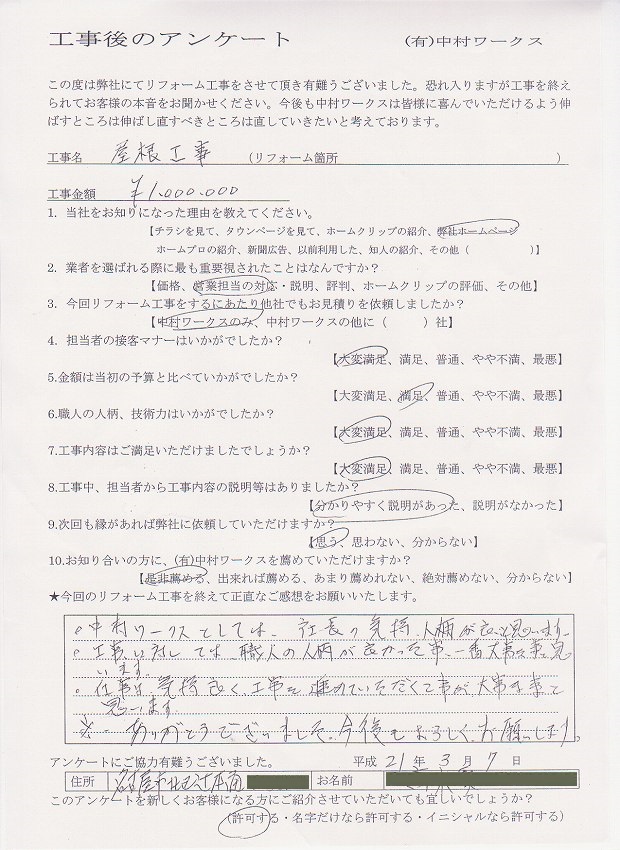 工事後のアンケート (有)中村ワークス
この度は弊社にてリフォーム工事をさせて頂き有難うございました。恐れ入りますが工事を終え
られてお客様の本音をお聞かせください。今後も中村ワークスは皆様に喜んでいただけるよう伸
ばすところは伸ばし直すべきところは直していきたいと考えております。
工事名 屋根工事 (リフォーム箇所 )
工事金額 ¥1,000,000
1. 当社をお知りになった理由を教えてください。
【チラシを見て、タウンページを見て、ホームクリップの紹介、弊社ホームページ
ホームプロの紹介、新聞広告、以前利用した、知人の紹介、その他( )】
2. 業者を選ばれる際に最も重要視されたことはなんですか?
【価格、営業担当の対応・説明、評判、ホームクリップの評価、その他】
3. 今回リフォーム工事をするにあたり他社でもお見積りを依頼しましたか?
【中村ワークスのみ、中村ワークスの他に( )社】
4. 担当者の接客マナーはいかがでしたか?
【大変満足、満足、普通、やや不満、最悪】
5.金額は当初の予算と比べていかがでしたか?
【大変満足、満足、普通、やや不満、最悪】
6.職人の人柄、技術力はいかがでしたか?
【大変満足、満足、普通、やや不満、最悪】
7.工事内容はご満足いただけましたでしょうか?
【大変満足、満足、普通、やや不満、最悪】
8.工事中、担当者から工事内容の説明等はありましたか?
【分かりやすく説明があった、説明がなかった】
9.次回も縁があれば弊社に依頼していただけますか?
【思う、思わない、分からない】
10.お知り合いの方に、(有)中村ワークスを薦めていただけますか?
【是非薦める、出来れば薦める、あまり薦めれない、絶対薦めない、分からない】
★今回のリフォーム工事を終えて正直なご感想をお願いいたします。
。中村ワークスとしては、社長の気持、人柄が良いと思います。
。工事に対しては、職人の人柄が良かった事、一番大事な事と思
います。
。仕事は、気持良く工事を進めていただくて事が大事な事と
思います
※・ありがとうございました。今後もよろしくお願いします。
アンケートにご協力有難うございました。 平成 21年 3月 7日
住所 名古屋市北区辻本通 お名前
このアンケートを新しくお客様になる方にご紹介させていただいても宜しいでしょうか?
(許可する・名字だけなら許可する・イニシャルなら許可する)